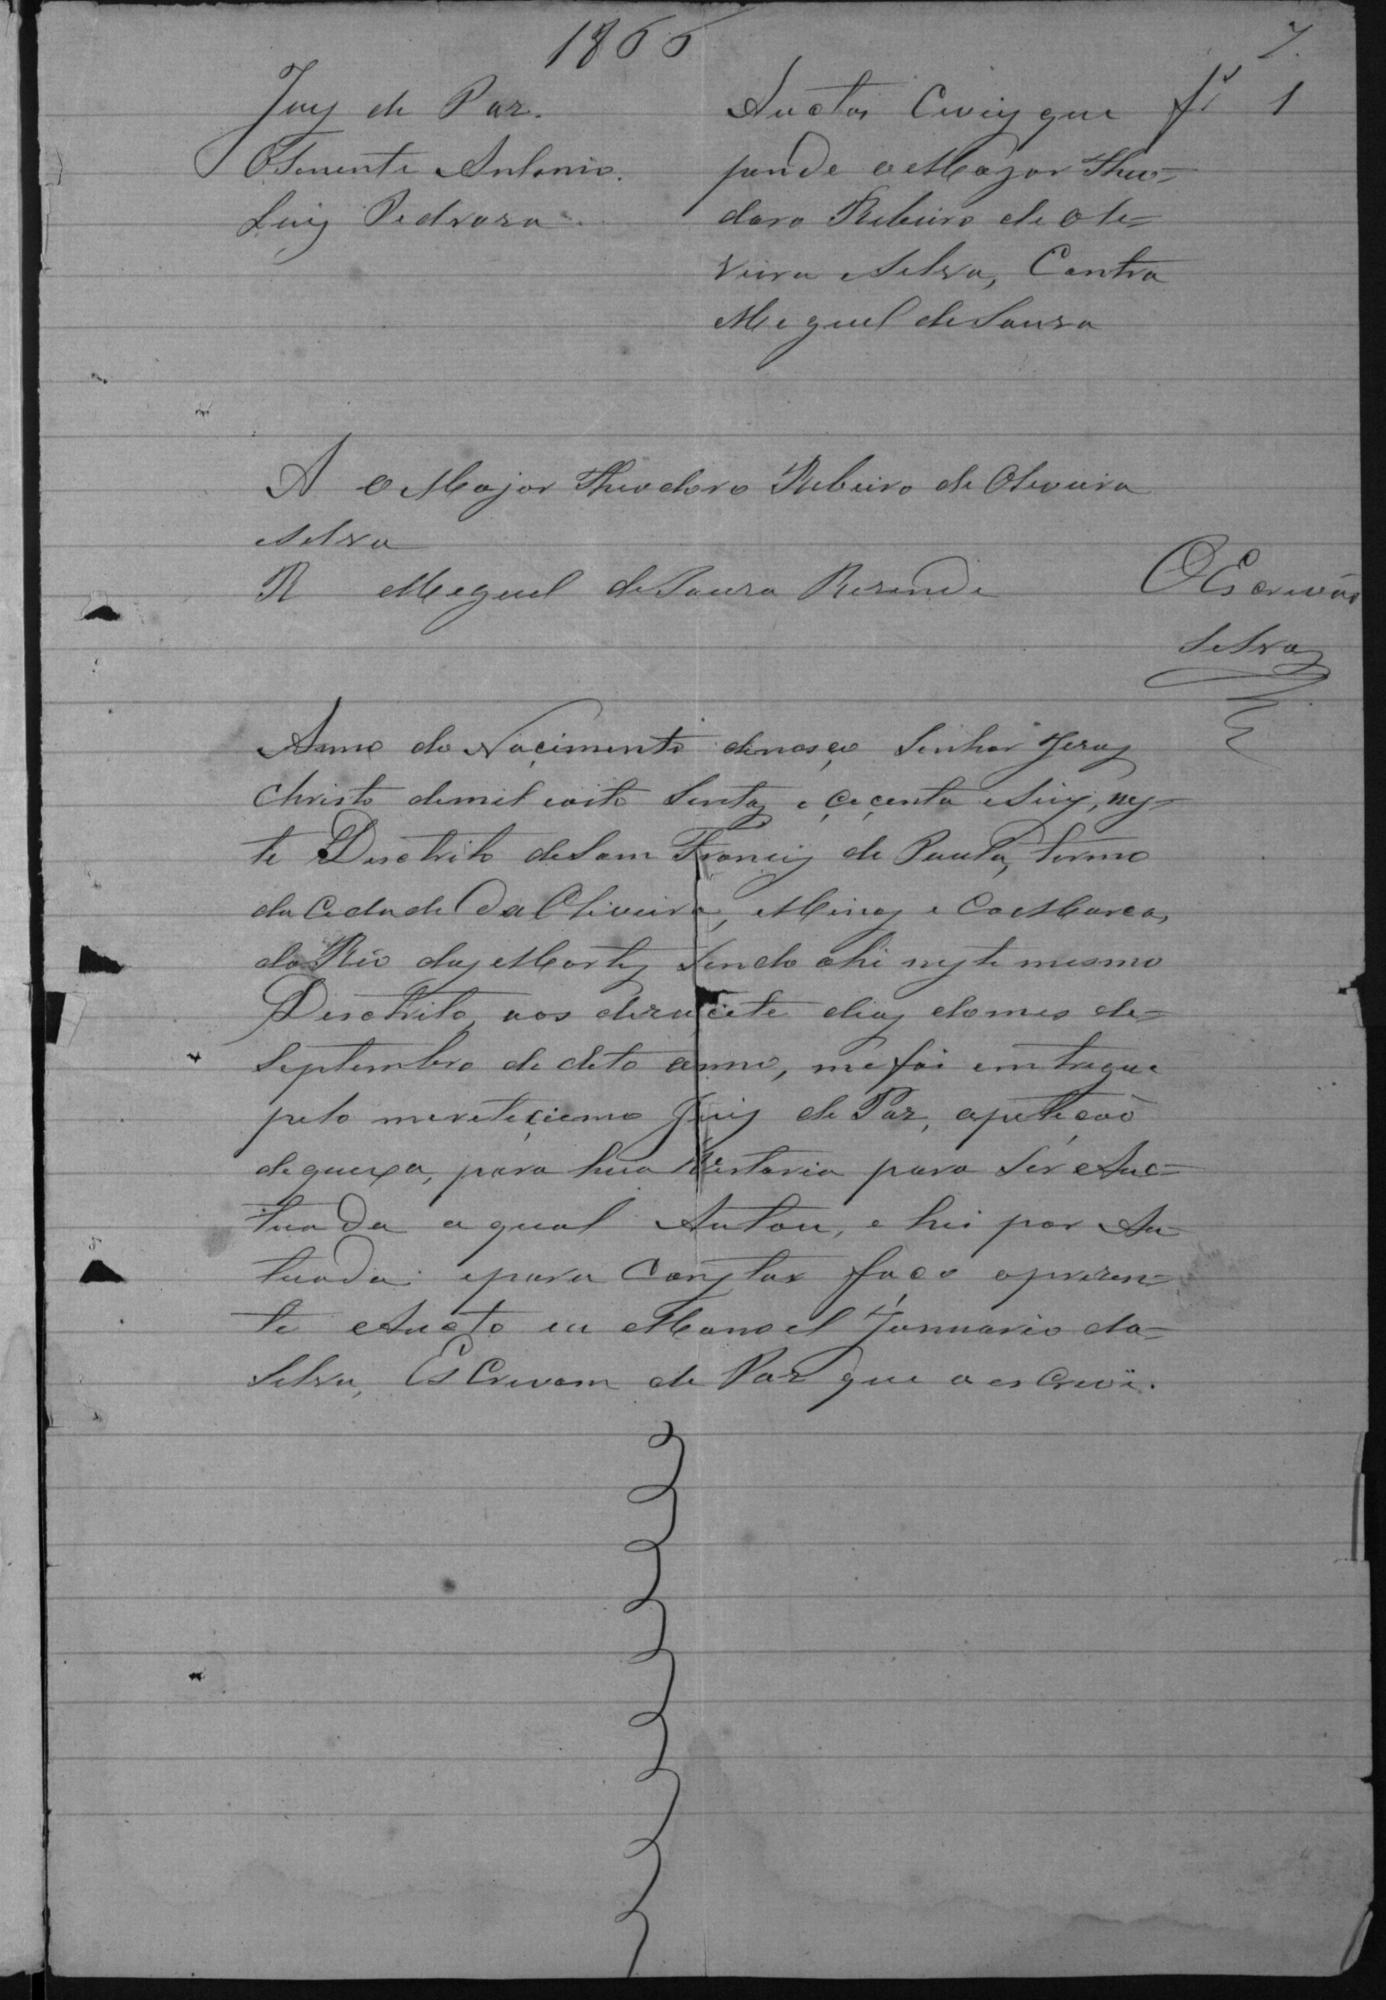 1866
7.
Juiz de Paz.
O Tenente Antonio.
Luiz Pedroza
Auctos Civeis que
pende o Major Theo-
doro Ribeiro de Oli-
veira e Silva, Contra
Miguel de Souza
fs 1
A o Major Theodoro Ribeiro de Oliveira
e Silva
R Miguel de Souza Rezende
O Escrivão
Silva
Anno do Naçimento de nosço Senhor Jezus
Christo de mil e oito Sentos e çeçenta e Seis, nes-
te Disctrito de Sam Francis de Paula, termo
da Cidade da Oliveira, Minas e CoMarca,
do Rio das Mortes Sendo ahi neste mesmo
Disctrito, aos dezaceite dias do mes de
Septembro de dito anno, me foi emtregue
pelo mereteçiemo Juiz de Paz, a peticaõ
de queixa, para hua Vestoria para Ser Auc-
tuada a qual Autou, e hei por Au-
tuada: e para Constar faço o prezen-
te Aucto eu Manoel Januario da
Silva, EsCrivam de Paz que o esCrevi.